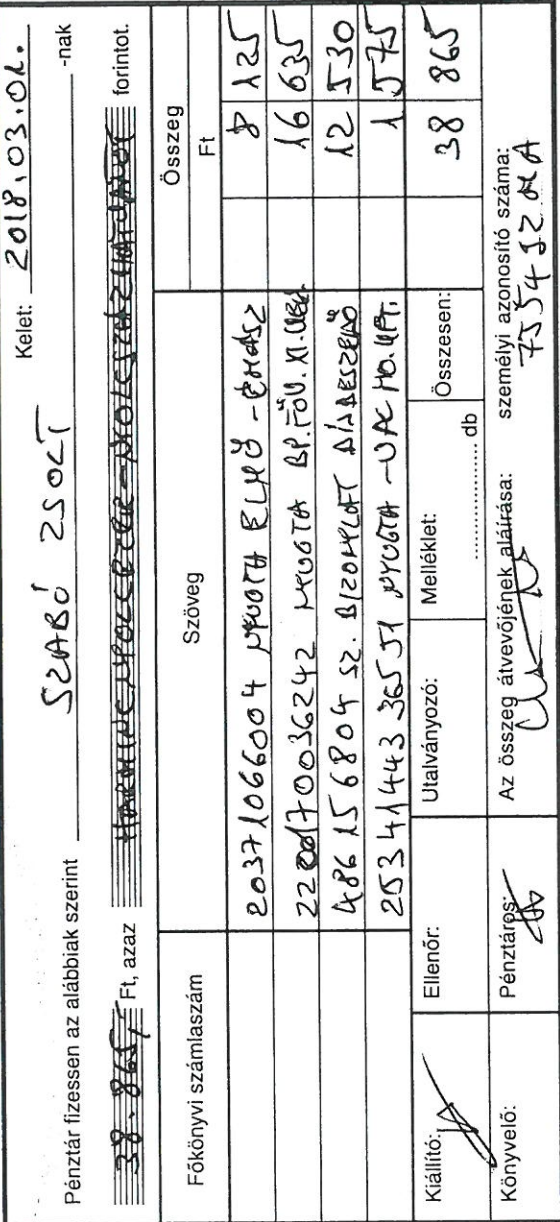 Kelet: 2018.03.01.
Pénztár fizessen az alábbiak szerint SZABÓ ZSOLT -nak
38.865,- Ft, azaz HARMINCNYOLCEZER-NYOLCSZÁZHATVANÖT forintot.
Főkönyvi számlaszám Szöveg Összeg
Ft
20371066004 NYUGTA ELMŰ-ÉMÁSZ 8 125
NYUGTA BP.FŐV.XI.KER. 16 635
486156804 SZ. BIZONYLAT DÍJBESZEDŐ 12 530
NYUGTA -UPC MO.KFT. 1 575
Kiállító: Ellenőr: Utalványozó: Melléklet: db Összesen: 38 865
Könyvelő: Pénztáros: Az összeg átvevőjének aláírása: személyi azonosító száma:
755452MA